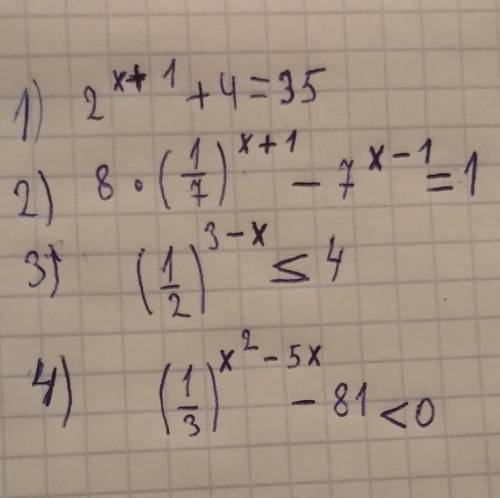 1) 2^(x+1) + 4 = 35
2) 8 · (1/7)^(x+1) − 7^(x−1) = 1
3) (1/2)^(3−x) ≤ 4
4) (1/3)^(x²−5x) − 81 < 0